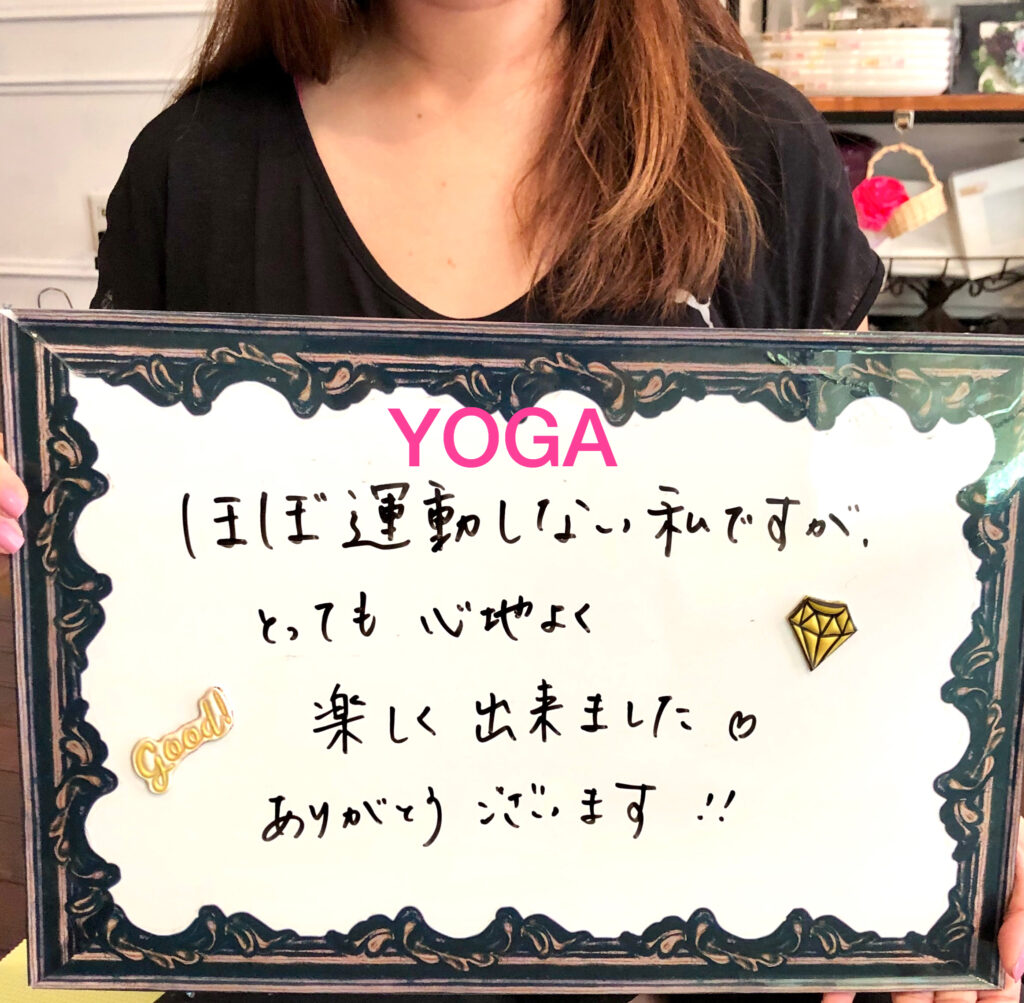 YOGA
ほぼ運動しない私ですが、
とっても心地よく
楽しく出来ました♡
Good!
ありがとうございます!!